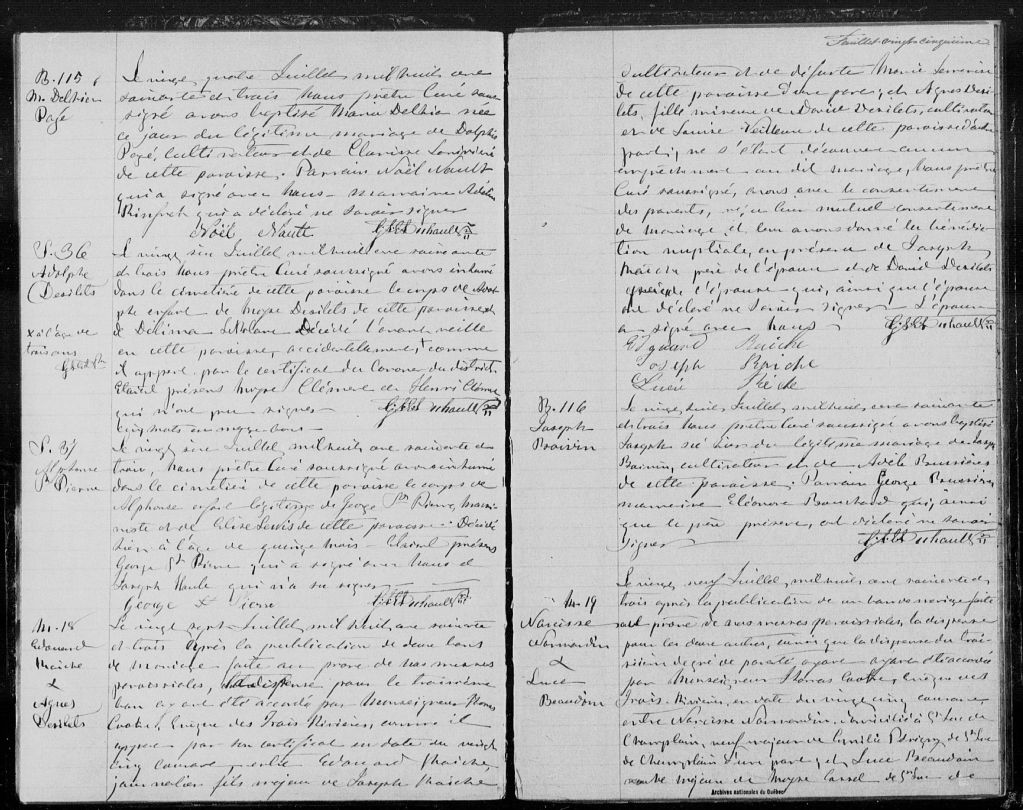 B. 115
M. Delhier
Pagé
Le vingt quatre Juillet mil huit cent
soixante et trois Nous prêtre Curé sous
signé avons baptisé Maria Delhier née
ce jour du légitime mariage de Dolphis
Pagé, cultivateur et de Clarisse
de cette paroisse. Parrain Noël Nault
qui a signé avec nous marraine
Rinfreth qui a déclaré ne savoir signer
Noël Nault
S. 36
Adolphe
Desilets
x à l'âge de
trois ans
Le vingt six Juillet mil huit cent soixante
et trois Nous prêtre Curé soussigné avons inhumé
dans le cimetière de cette paroisse le corps de Adol
phe enfant de Moyse Desilets de cette paroisse et
de Délima Leblanc Décédé l'avant veille
en cette paroisse, accidentellement, x comme
il appert par le certificat du Coroner du district
Etaient présens Moyse Clément et Henri Clément
qui n'ont pu signer
Cinq mots en marge bons
S. 37
Alphonse
St Pierre
Le vingt six Juillet mil huit cent soixante et
trois, Nous prêtre Curé soussigné avons inhumé
dans le cimetière de cette paroisse le corps de
Alphonse enfant légitime de George St Pierre,
et de Elise Lewis de cette paroisse. Décédé
à l'âge de quinze mois - Etaient présens
George St Pierre qui a signé avec nous et
Joseph Houle qui n'a su signer
George St Pierre
M. 18
Edouard
Raiche
&
Agnes
Desilets
Le vingt sept Juillet mil huit cent soixante
et trois après la publication de deux bans
de mariage faite au prone de nos messes
paroissiales, la dispense pour le troisième
ban ayant été accordé par Monseigneur Thomas
Cooke, Evêque des Trois Rivières, comme il
appert par son certificat en date du vingt
cinq courant, entre Edouard Raiche,
journalier fils majeur de Joseph Raiche
Feuillet vingt-cinquième
cultivateur et de défunte Marie
de cette paroisse d'une part, et Agnes Desi
lets, fille mineure de David Desilets, cultivateur
et de Louise Veilleux de cette paroisse d'autre
part, ne s'étant découvert aucun
empêchement au dit mariage, Nous prêtre
Curé soussigné, avons avec le consentement
des parents, reçu leur mutuel consentement
de mariage et leur avons donné la bénédic
tion nuptiale, en présence de Joseph
Raiche père de l'époux et de David Desilets
père de l'épouse qui, ainsi que l'épouse
ont déclaré ne savoir signer - L'époux
a signé avec nous -
Edouard Raiche
Joseph Raiche
B. 116
Joseph
Boivin
Le vingt huit Juillet mil huit cent soixante
et trois Nous prêtre Curé soussigné avons baptisé
Joseph né hier du légitime mariage de Joseph
Boivin, cultivateur et de Adèle Bussières
de cette paroisse. Parrain George Bussières
marraine Eléonore Bouchard qui, ainsi
que le père présent, ont déclaré ne savoir
signer
M. 19
Narcisse
Normandin
&
Luce
Beaudoin
Le vingt neuf Juillet, mil huit cent soixante et
trois après la publication de un ban de mariage faite
au prone de nos messes paroissiales, la dispense
pour les deux autres, ainsi que la dispense du troi
sième degré de parenté ayant été accordée
par Monseigneur Thomas Cooke, Evêque des
Trois-Rivières, en date du vingt cinq courant
entre Narcisse Normandin, domicilié à St Luc de
Champlain, veuf majeur de Emilie de St Luc
de Champlain d'une part, et Luce Beaudoin
veuve majeure de Moyse de St Luc de
Archives nationales du Québec